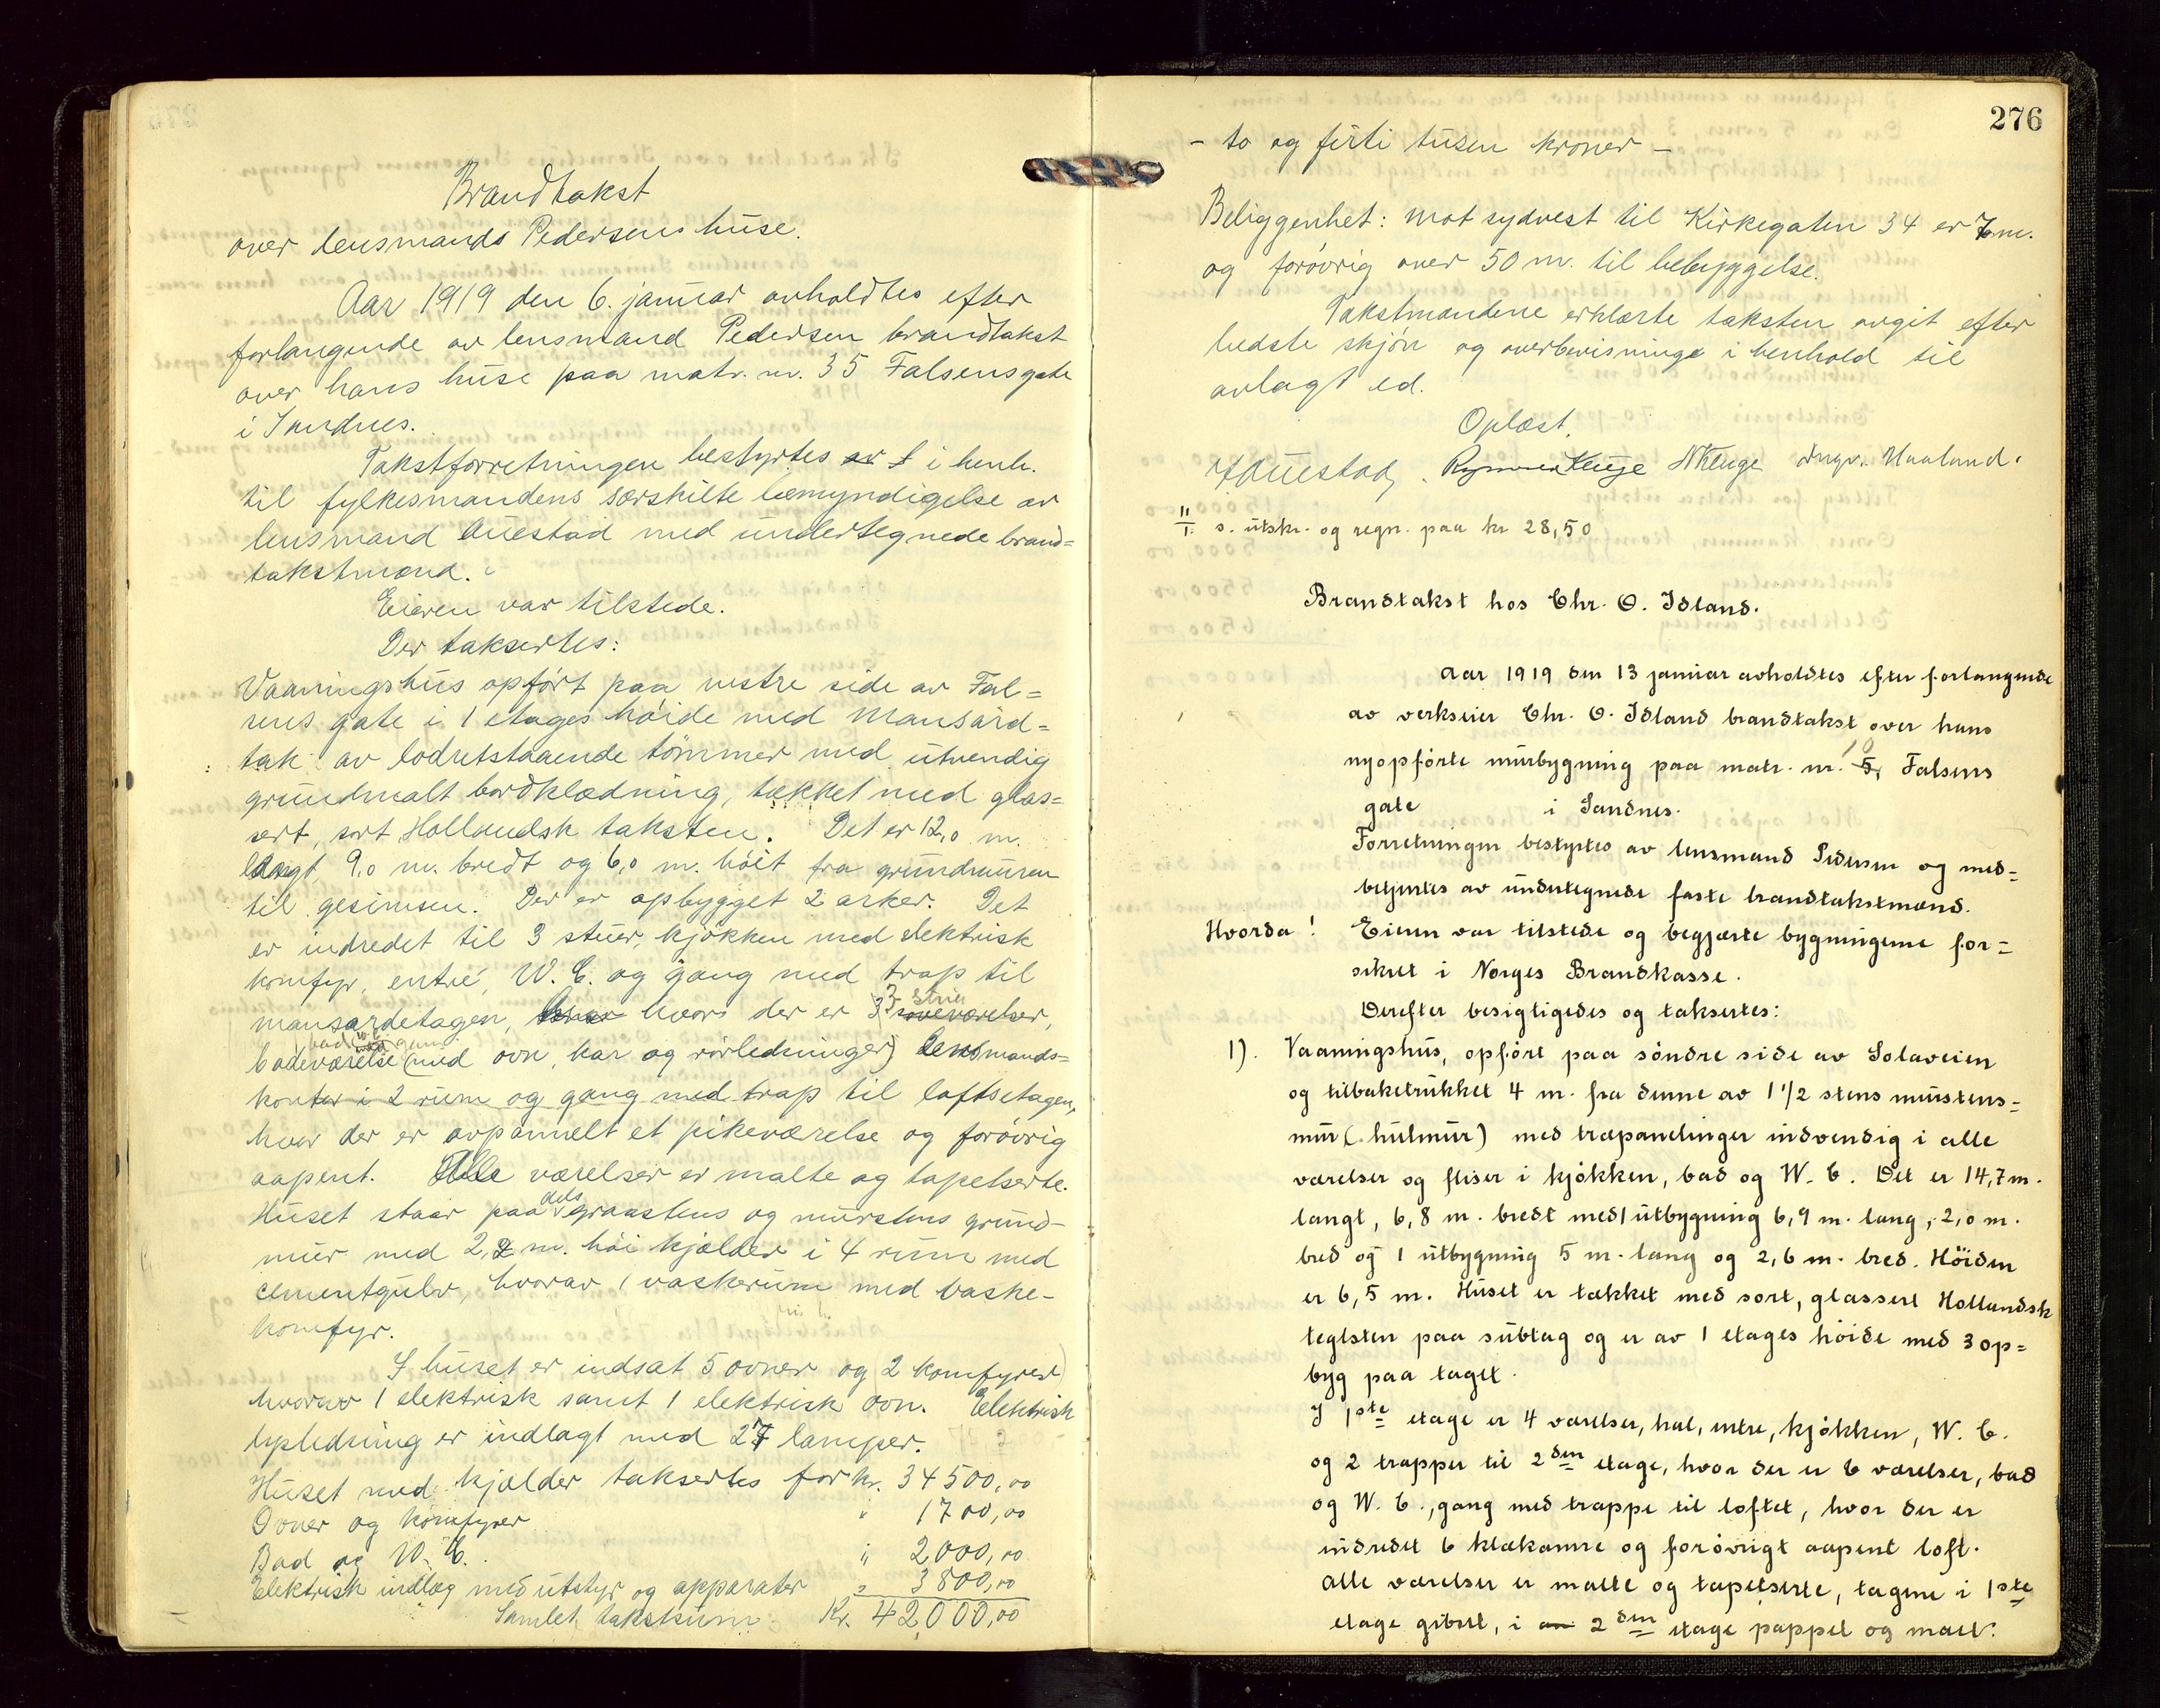 Brandtakst
over lensmands Pedersens huse.
Aar 1919 den 6. januar avholdtes efter
forlangende av lensmand Pedersen brandtakst
over hans huse paa matr. nr. 35 Falsensgate
i Sandnes.
Takstforretningen bestyrtes av f i henh.
til fylkesmandens særskilte bemyndigelse av
lensmand Auestad med undertegnede brand=
takstmænd.
Eieren var tilstede.
Der taksertes:
Vaaningshus opført paa vestre side av Fal=
sens gate i 1 etages høide med Mansard=
tak av lodretstaaende tømmer med utvendig
grundmalt bordklædning, tækket med glas=
sert, sort Hollandsk taksten. Det er 12,0 m.
langt, 9,0 m. bredt og 6,0 m. høit fra grundmuren
til gesimsen. Der er opbygget 2 arker. Det
er indredet til 3 stuer, kjøkken med elektrisk
komfyr, entré, W. C. og gang med trap til
mansardetagen, hvori der er 3 soveværelser,
3 stuer
badeværelse (med ovn, kar og rørledninger) Lensmands=
kontor i 2 rum og gang med trap til loftsetagen,
hvor der er avpannelt et pikeværelse og forøvrig
aapent. Alle værelser er malte og tapetserte.
Huset staar paa dels graastens og murstens grund-
mur med 2,2 m. høi kjælder i 4 rum med
cementgulv, hvorav 1 vaskerum med vaske-
komfyr.
I huset er indsat 5 ovner og 2 komfyrer,
hvorav 1 elektrisk samt 1 elektrisk ovn. Elektrisk
lysledning er indlagt med 27 lamper.
Huset med kjælder taksertes for kr. 34500,00
Ovner og komfyrer " 1700,00
Bad og W. C. " 2000,00
Elektrisk indlæg med utstyr og apparater " 3800,00
Samlet takstsum Kr. 42000,00
276
- to og firti tusen kroner -
Beliggenhet: mot sydvest til Kirkegaten 34 er 7 m.
og forøvrig over 50 m. til bebyggelse.
Takstmændene erklærte taksten avgit efter
bedste skjøn og overbevisninge i henhold til
avlagt ed.
Oplæst.
Auestad. Kluge N Kluge Ingv. Haaland.
11/1. s. utskr. og regn. paa kr 28,50
Brandtakst hos Chr. O. Idland.
Aar 1919 den 13 januar avholdtes efter forlangende
av verkseier Chr. O. Idland brandtakst over hans
nyopførte murbygning paa matr. nr. 5, 10 Falsens
gate i Sandnes.
Forretningen bestyrtes av lensmand Pedersen og med=
betjentes av undertegnede faste brandtakstmænd.
Hvorda! Eieren var tilstede og begjærte bygningerne for=
sikret i Norges Brandkasse.
Derefter besigtigedes og taksertes:
1). Vaaningshus, opført paa søndre side av Solaveien
og tilbaketrukket 4 m. fra denne av 1 1/2 stens murstens=
mur (hulmur) med træpanelinger indvendig i alle
værelser og fliser i kjøkken, bad og W. C. Det er 14,7 m.
langt, 6,8 m. bredt med 1 utbygning 6,9 m. lang, 2,0 m.
bred og 1 utbygning 5 m. lang og 2,6 m. bred. Höiden
er 6,5 m. Huset er tækket med sort, glassert Hollandsk
teglsten paa subtag og er av 1 etages høide med 3 op=
byg paa taget.
I 1ste etage er 4 værelser, hal, entre, kjøkken, W. C.
og 2 trapper til 2den etage, hvor der er 6 værelser, bad
og W. C., gang med trappe til loftet, hvor der er
indredet 6 klækamre og forøvrigt aapent loft.
Alle værelser er malte og tapetserte, tagene i 1ste
etage gibset, i an 2den etage pappet og malt.